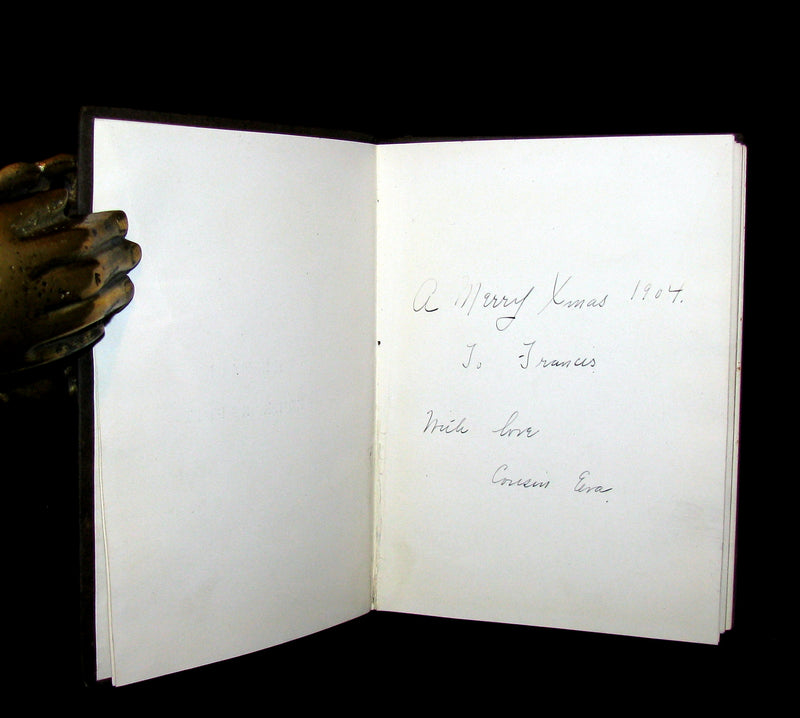 A Merry Xmas 1904.
To Francis
With love
Cousin Eva.